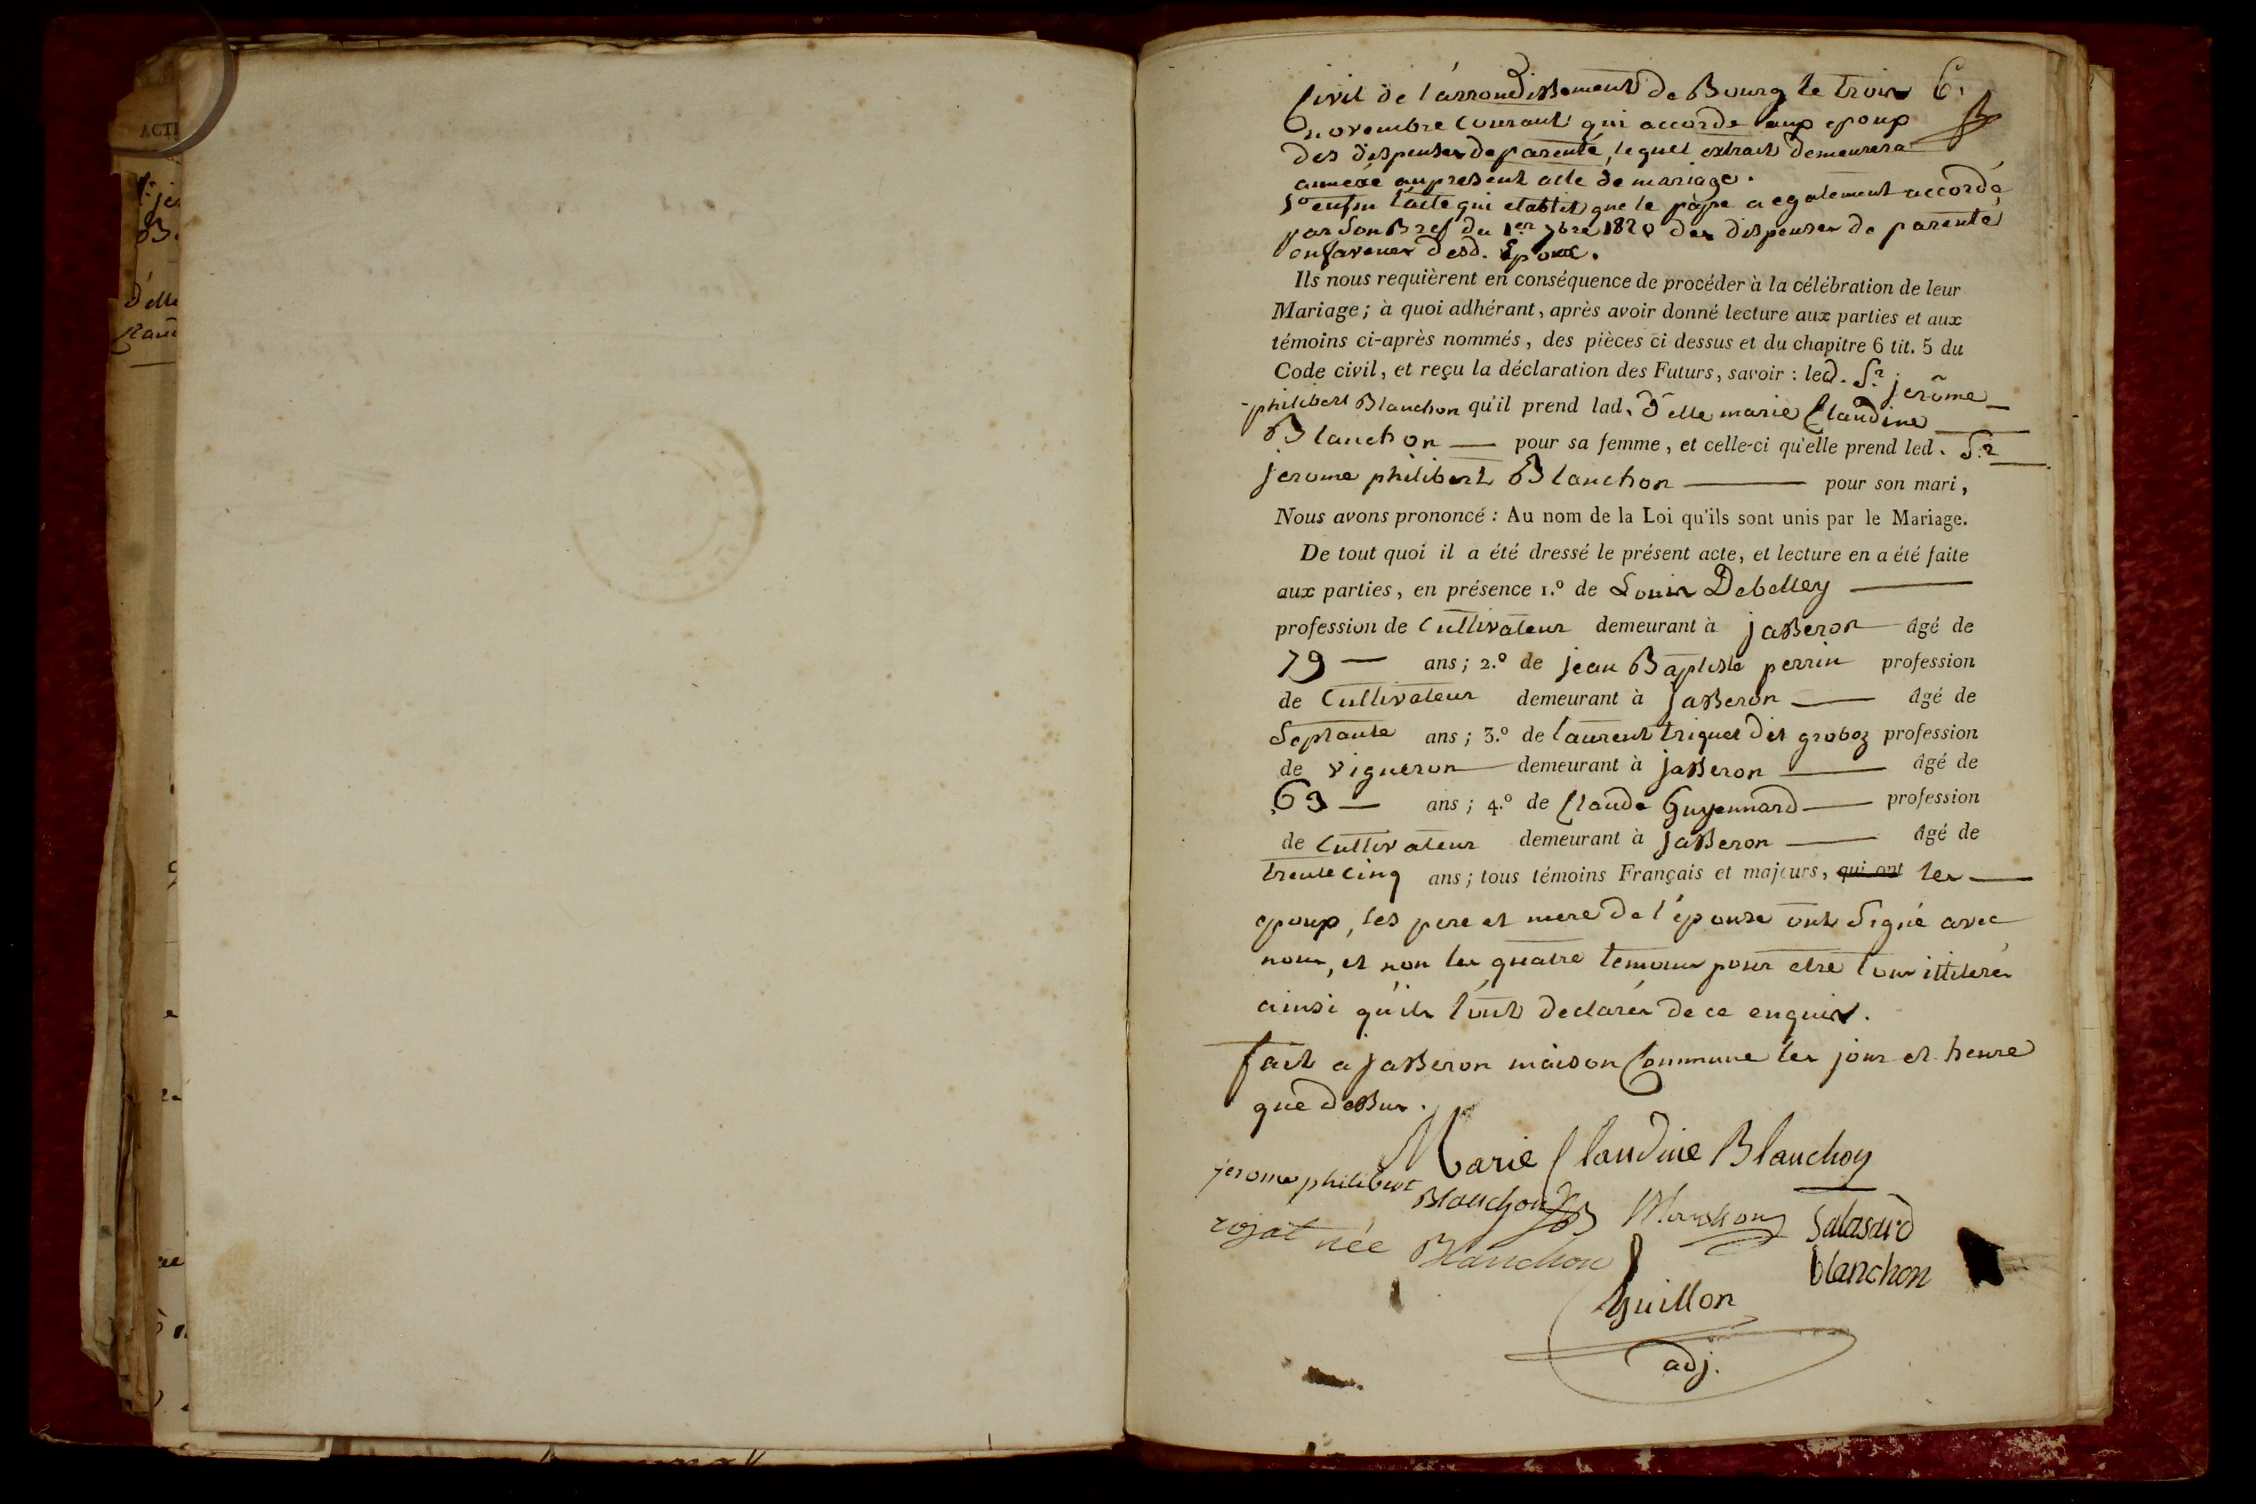 ACTE
Civil de l'arrondissement de Bourg le trois 6.
novembre courant qui accorde aux epoux
des dispenses de parenté, lequel extrait demeurera
annexé au present acte de mariage.
5º enfin l'acte qui etablit que le pape a egalement accordé
par son Bref du 1er 7bre 1820 des dispenses de parenté
en faveur desd. Epoux.
Ils nous requièrent en conséquence de procéder à la célébration de leur
Mariage ; à quoi adhérant, après avoir donné lecture aux parties et aux
témoins ci-après nommés, des pièces ci dessus et du chapitre 6 tit. 5 du
Code civil, et reçu la déclaration des Futurs, savoir : led. Sr. jerôme
philibert Blanchon qu'il prend lad. d'elle marie Claudine
Blanchon pour sa femme, et celle-ci qu'elle prend led. Sr.
jerome philibert Blanchon pour son mari,
Nous avons prononcé : Au nom de la Loi qu'ils sont unis par le Mariage.
De tout quoi il a été dressé le présent acte, et lecture en a été faite
aux parties, en présence 1.º de Louis Debelley
profession de Cultivateur demeurant à jasseron âgé de
79 ans ; 2.º de jean Baptiste perrin profession
de Cultivateur demeurant à jasseron âgé de
Septante ans ; 3.º de laurent triquet dit groboz profession
de vigneron demeurant à jasseron âgé de
63 ans ; 4.º de Claude Guyennard profession
de Cultivateur demeurant à jasseron âgé de
trente cinq ans ; tous témoins Français et majeurs, qui ont les
epoux, les pere et mere de l'épouse ont signé avec
nous, et non les quatre temoins pour etre tous illiterés
ainsi qu'ils l'ont declarés de ce enquis.
fait a jasseron maison Commune les jour et heure
que dessus.
Marie Claudine Blanchon
jerome philibert
Blanchon
Blanchon
Salasard
rojat née Blanchon
blanchon
Guillon
adj.